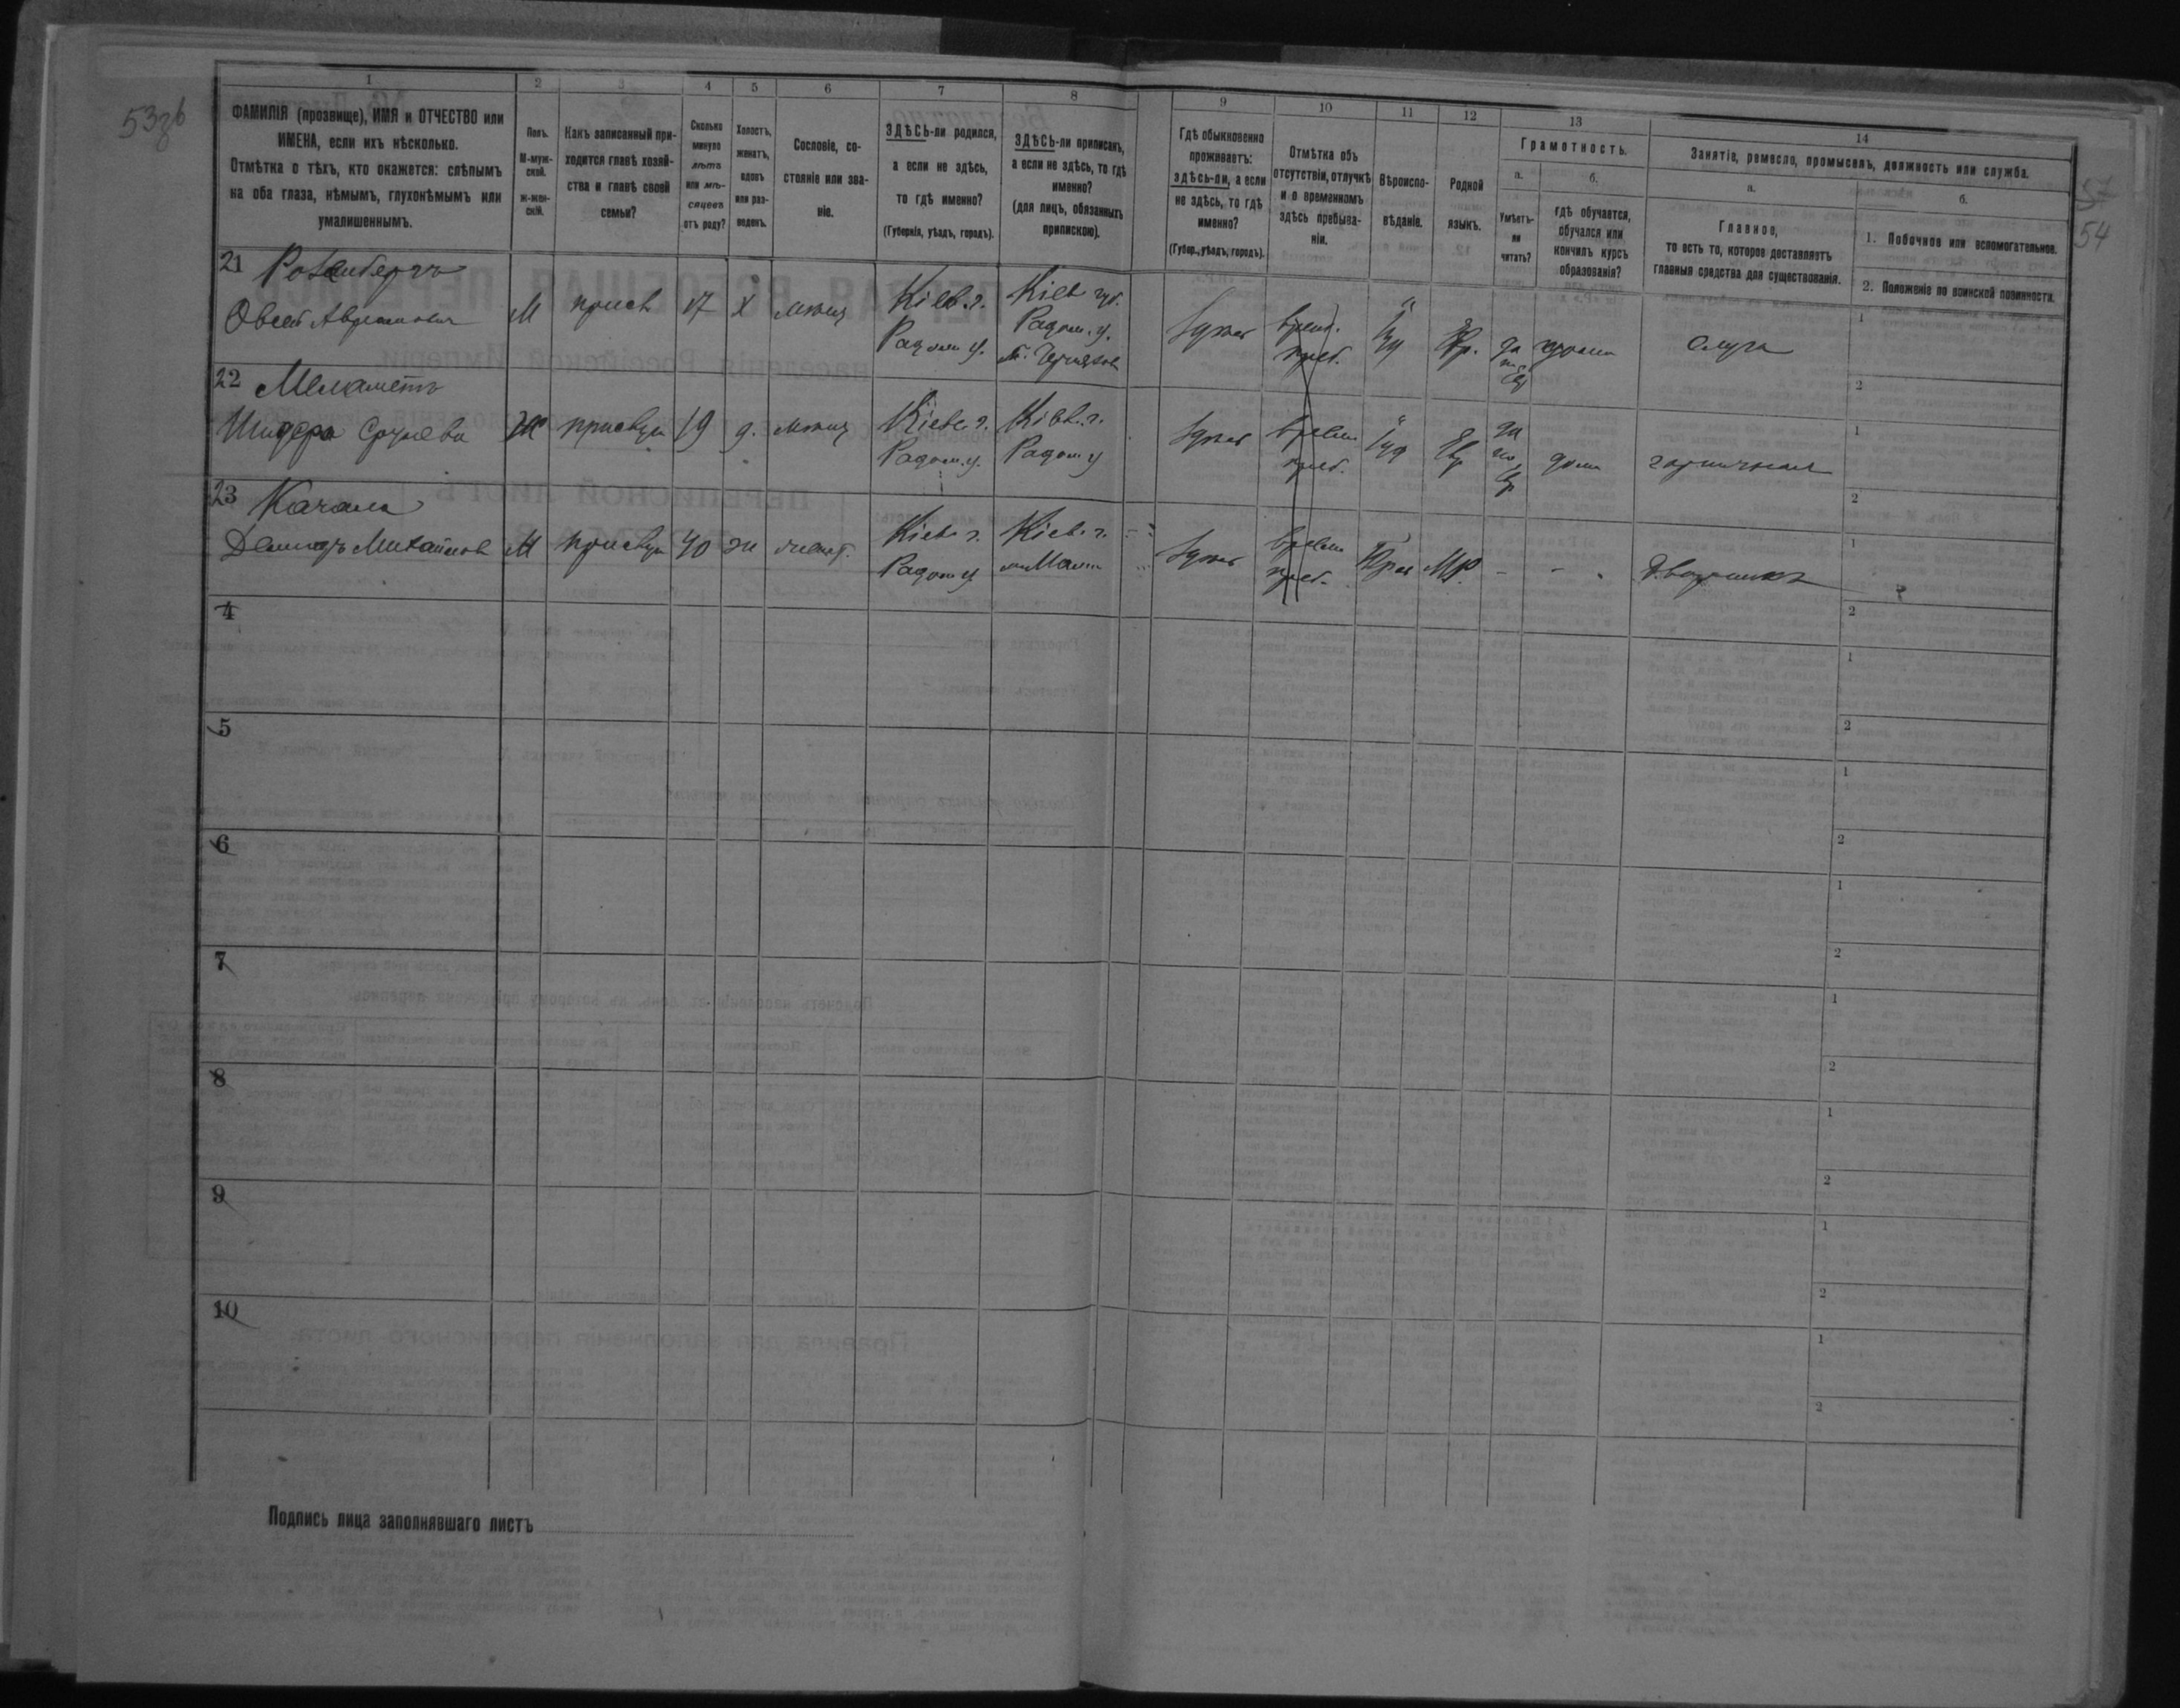 53
57
54
1 2 3 4 5 6 7 8 9 10 11 12 13 14
ФАМИЛІЯ (прозвище), ИМЯ и ОТЧЕСТВО или
ИМЕНА, если ихъ нѣсколько.
Отмѣтка о тѣхъ, кто окажется: слѣпымъ
на оба глаза, нѣмымъ, глухонѣмымъ или
умалишеннымъ.
Полъ.
М-муж-
ской.
ж-жен-
скій.
Какъ записанный при-
ходится главѣ хозяй-
ства и главѣ своей
семьи?
Сколько
минуло
лѣтъ
или мѣ-
сяцевъ
отъ роду?
Холостъ,
женатъ,
вдовъ
или раз-
веденъ.
Сословіе, со-
стояніе или зва-
ніе.
ЗДѢСЬ-ли родился,
а если не здѣсь,
то гдѣ именно?
(Губернія, уѣздъ, городъ).
ЗДѢСЬ-ли приписанъ,
а если не здѣсь, то гдѣ
именно?
(для лицъ, обязанныхъ
припискою).
Гдѣ обыкновенно
проживаетъ:
здѣсь-ли, а если
не здѣсь, то гдѣ
именно?
(Губер., уѣздъ, городъ).
Отмѣтка объ
отсутствіи, отлучкѣ
и о временномъ
здѣсь пребыва-
ніи.
Вѣроиспо-
вѣданіе.
Родной
языкъ.
Грамотность.
а.
Умѣетъ-
ли
читать?
б.
гдѣ обучается,
обучался или
кончилъ курсъ
образованія?
Занятіе, ремесло, промыселъ, должность или служба.
а.
Главное,
то есть то, которое доставляетъ
главныя средства для существованія.
б.
1. Побочное или вспомогательное.
2. Положеніе по воинской повинности.
21 Розенбергъ
Овсей Аврамович М присл 17 х мѣщ Кіев. г. Радом. у. Кіев губ. Радом. у. м. Черняхов
врем. преб. Іуд да дома слуга
1
2
22 Меламетъ
Сруяева Ж прислуга 19 д. мѣщ Кіевс. г. Радом. у. Кіев. г. Радом у
врем преб. Іуд Евр да дома горничная
1
2
23 Качала
Демидъ Михайлов М прислуга 40 ж Кіев. г. Радом у Кіев. г.
врем преб. Прав МР. - - Дворникъ
1
2
4
1
2
5
1
2
6
1
2
7
1
2
8
1
2
9
1
2
10
1
2
Подпись лица заполнявшаго листъ